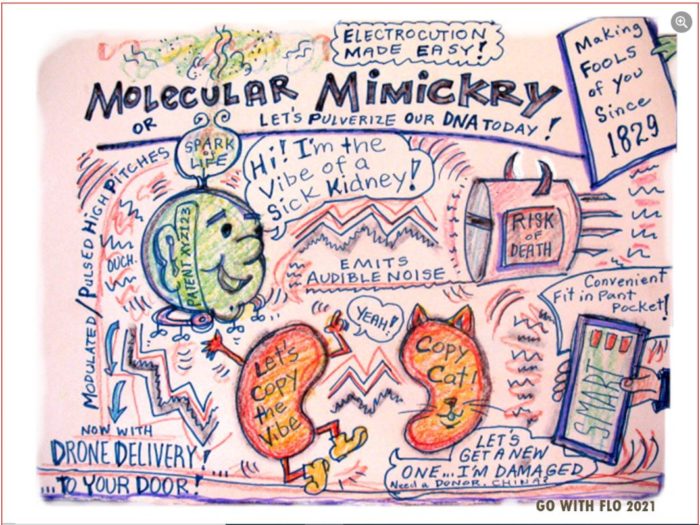 ELECTROCUTION
MADE EASY!
Making
FOOLS
of you
Since
1829
MOLECULAR MIMICKRY
OR
LET'S PULVERIZE OUR DNA TODAY!
SPARK
OF
LIFE
Hi! I'm the
Vibe of a
Sick Kidney!
MODULATED/PULSED HIGH PITCHES
OUCH.
PATENT XYZ123
RISK
OF
DEATH
EMITS
AUDIBLE NOISE
Convenient
Fit in Pant
Pocket!
YEAH!
Let's
Copy
the
Vibe
COPY
Cat!
SMART
NOW WITH
DRONE DELIVERY!
...TO YOUR DOOR!
LET'S
GET A NEW
ONE...I'M DAMAGED
Need a DONOR, CHINA?
GO WITH FLO 2021